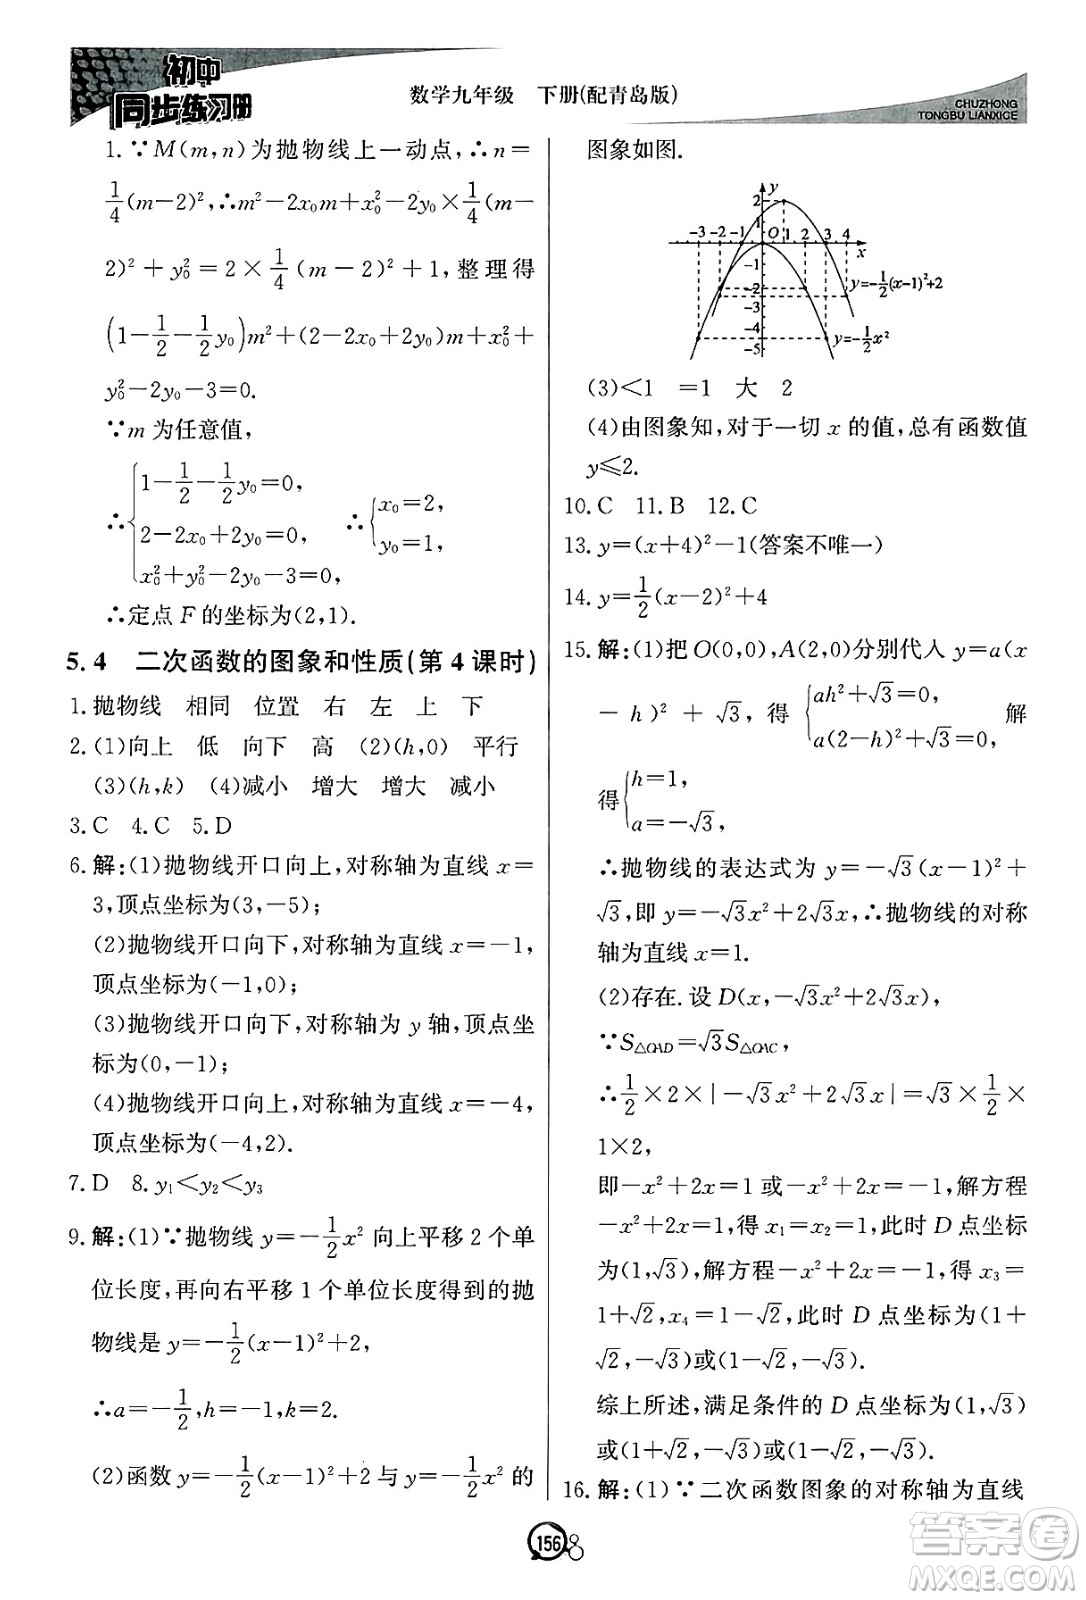 初中
同步练习册
数学九年级 下册(配青岛版)
CHUZHONG
TONGBU LIANXICE
1.∵M(m,n)为抛物线上一动点,∴n=
1/4(m-2)²,∴m²-2x₀m+x₀²-2y₀×1/4(m-
2)²+y₀²=2×1/4(m-2)²+1,整理得
(1-1/2-1/2y₀)m²+(2-2x₀+2y₀)m+x₀²+
y₀²-2y₀-3=0.
∵m 为任意值,
∴{1-1/2-1/2y₀=0,
2-2x₀+2y₀=0,
x₀²+y₀²-2y₀-3=0,
∴{x₀=2,
y₀=1,
∴定点 F 的坐标为(2,1).
5.4 二次函数的图象和性质(第 4 课时)
1.抛物线 相同 位置 右 左 上 下
2.(1)向上 低 向下 高 (2)(h,0) 平行
(3)(h,k) (4)减小 增大 增大 减小
3.C 4.C 5.D
6.解:(1)抛物线开口向上,对称轴为直线 x=
3,顶点坐标为(3,-5);
(2)抛物线开口向下,对称轴为直线 x=-1,
顶点坐标为(-1,0);
(3)抛物线开口向下,对称轴为 y 轴,顶点坐
标为(0,-1);
(4)抛物线开口向上,对称轴为直线 x=-4,
顶点坐标为(-4,2).
7.D 8.y₁<y₂<y₃
9.解:(1)∵抛物线 y=-1/2x² 向上平移 2 个单
位长度,再向右平移 1 个单位长度得到的抛
物线是 y=-1/2(x-1)²+2,
∴a=-1/2,h=-1,k=2.
(2)函数 y=-1/2(x-1)²+2 与 y=-1/2x² 的
图象如图.
y
2
1
-3 -2 -1 O 1 2 3 4 x
-1
-2
-3
-4
-5
y=-1/2(x-1)²+2
y=-1/2x²
(3)<1 =1 大 2
(4)由图象知,对于一切 x 的值,总有函数值
y≤2.
10.C 11.B 12.C
13.y=(x+4)²-1(答案不唯一)
14.y=1/2(x-2)²+4
15.解:(1)把 O(0,0),A(2,0)分别代入 y=a(x
-h)²+√3,得{ah²+√3=0,
a(2-h)²+√3=0, 解
得{h=1,
a=-√3,
∴抛物线的表达式为 y=-√3(x-1)²+
√3,即 y=-√3x²+2√3x,∴抛物线的对称
轴为直线 x=1.
(2)存在.设 D(x,-√3x²+2√3x),
∵S△OAD=√3S△OAC,
∴1/2×2×|-√3x²+2√3x|=√3×1/2×
1×2,
即-x²+2x=1 或-x²+2x=-1,解方程
-x²+2x=1,得 x₁=x₂=1,此时 D 点坐标
为(1,√3),解方程-x²+2x=-1,得 x₃=
1+√2,x₄=1-√2,此时 D 点坐标为(1+
√2,-√3)或(1-√2,-√3).
综上所述,满足条件的 D 点坐标为(1,√3)
或(1+√2,-√3)或(1-√2,-√3).
16.解:(1)∵二次函数图象的对称轴为直线
156
答案卷
MXQE.COM